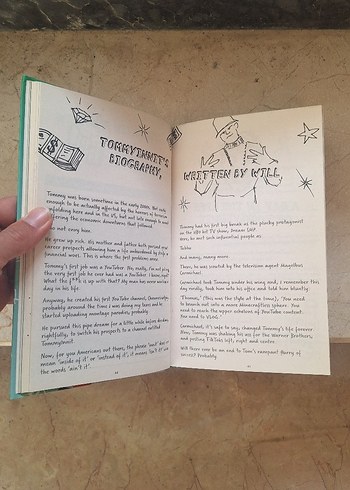 TOMMYINNIT'S
BIOGRAPHY,
Tommy was born sometime in the early 2000s. Not early
enough to be actually affected by the horrors of terrorism
unfolding here and in the US, but not late enough to avoid
the economic Adventures that followed.
not envy him.
He grew up rich. His mother and father both paid
career prospects allowing him a life unburdened by
financial woes. This is where the first problems arose.
Tommy's first job was a YouTuber. No, really, I'm not joking
the very first job he ever had was a YouTuber. I know, right?
What the f**k is up with that? My man has never worked a
day in his life.
Anyway, he created his first YouTube channel, Channelnutpig,
probably around the time I was doing my
started uploading montage parodies, probably.
He pursued this pipe dream for a little while before
rightfully, to switch his prospects to a channel entitled
TommyInnit.
Now, for you Americans out there, the phrase 'innit' does not
mean 'inside of it' or 'instead of it', it means 'isn't it' or
the words 'ain't it'.
WRITTEN BY WILL,
Tommy had his first big break as the plucky protagonist
on the TV show, Dream SMP.
Here, he met such influential people as:
Tubbo
And many, many more
There, he was created by the television agent
Carmichael.
Carmichael took Tommy under his wing and, I remember this
day vividly, took him into his office and told him bluntly
'Thomas,' (this was the style at the time), 'You need
to branch out into a more Minecraftless sphere. You
need to reach the upper echelons of YouTube content.
You need to VLOG.'
Carmichael, it's safe to say, changed Tommy's life forever.
Now, Tommy was shaking his ass for the Warner Brothers,
and pulling left, right and centre.
Will there ever be an end to Tom's runaround? Horny of
success? Probably.